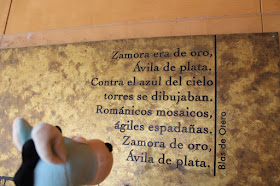 Zamora era de oro,
Ávila de plata.
Contra el azul del cielo
torres se dibujaban.
Románicos mosaicos,
ágiles espadañas.
Zamora de oro,
Ávila de plata.
Blas de Otero